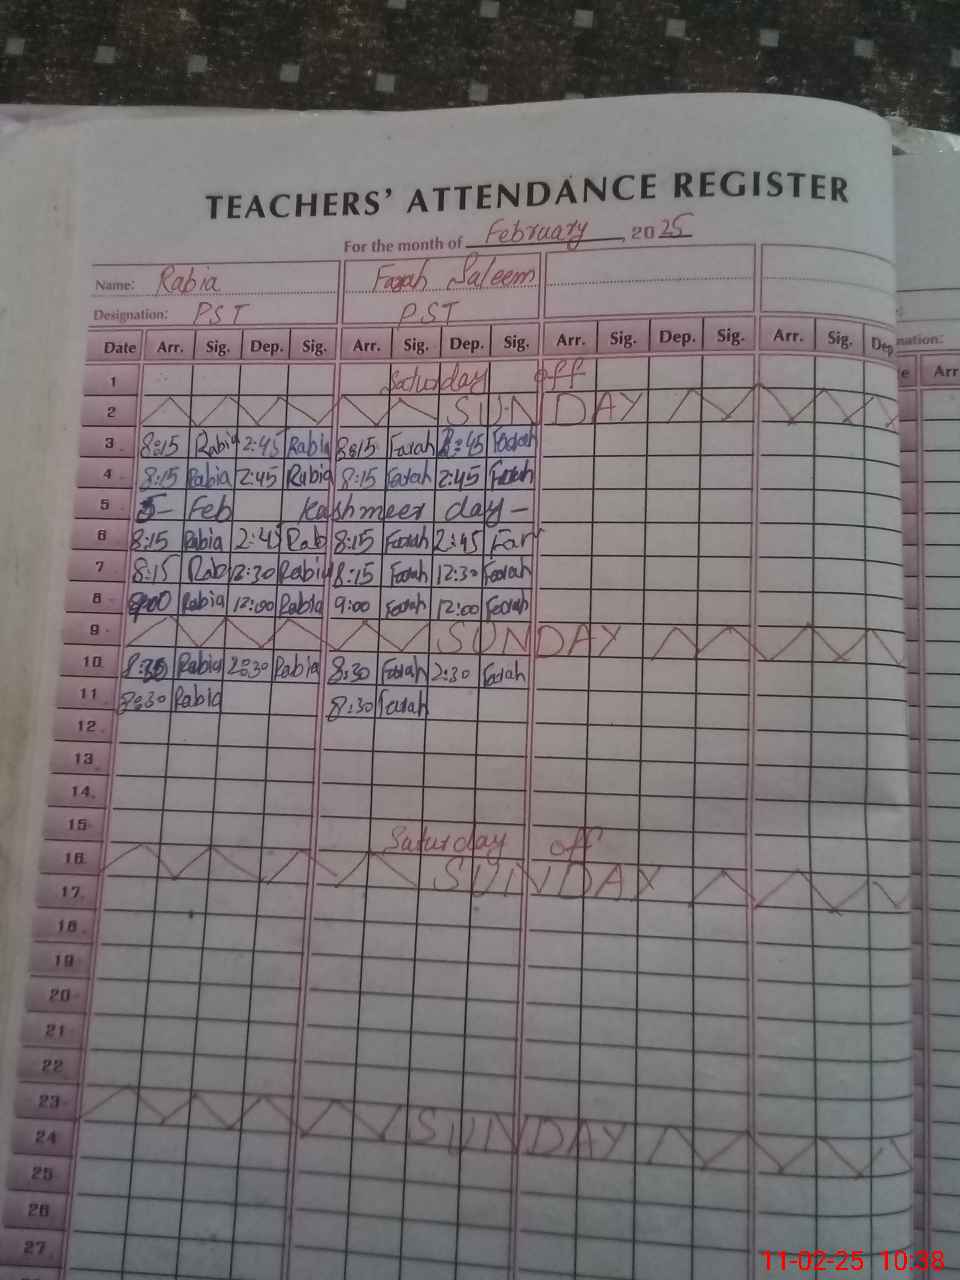 TEACHERS' ATTENDANCE REGISTER
For the month of February, 2025
Name: Rabia Farah Saleem
Designation: PST PST
Date Arr. Sig. Dep. Sig. Arr. Sig. Dep. Sig. Arr. Sig. Dep. Sig. Arr. Sig. Dep
nation:
e Arr
1 Saturday off
2 SUNDAY
3 8:15 Rabia 2:45 Rabia 8:15 Farah 2:45 Farah
4 8:15 Rabia 2:45 Rabia 8:15 Farah 2:45 Farah
5 5- Feb Kashmeer day -
6 8:15 Rabia 2:45 Rab 8:15 Farah 2:45 Far
7 8:15 Rab 12:30 Rabia 8:15 Farah 12:30 Farah
8 9:00 Rabia 12:00 Rabia 9:00 Farah 12:00 Farah
9 SUNDAY
10 8:30 Rabia 2:30 Rabia 8:30 Farah 2:30 Farah
11 8:30 Rabia 8:30 Farah
12
13
14
15 Saturday off
16 SUNDAY
17
18
19
20
21
22
23 SUNDAY
24
25
26
27
11-02-25 10:38